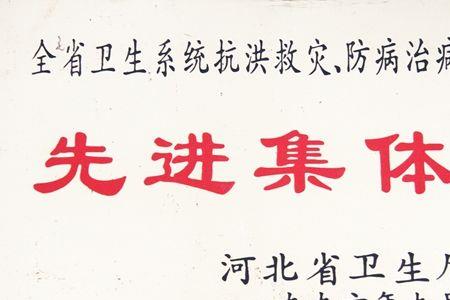 全省卫生系统抗洪救灾、防病治病
先进集体
河北省卫生厅